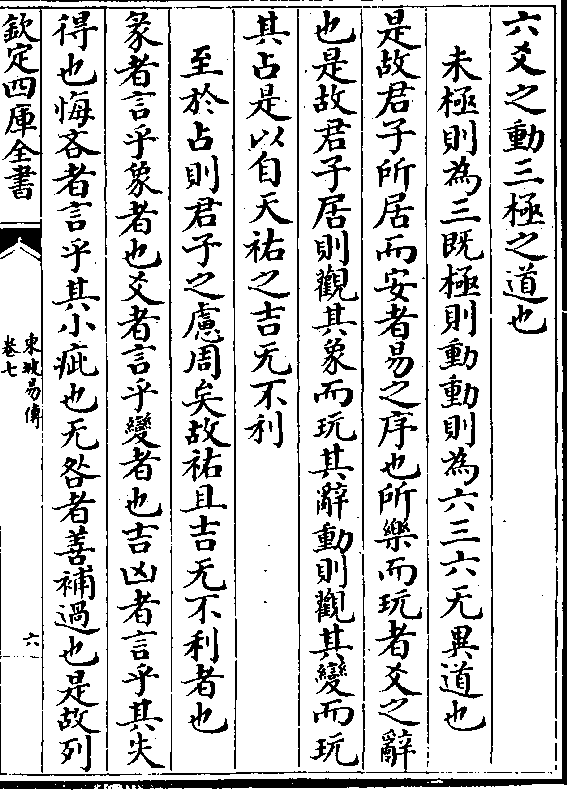 六爻之動三極之道也
未極則為三既極則動動則為六三六无異道也
是故君子所居而安者易之序也所樂而玩者爻之辭
也是故君子居則觀其象而玩其辭動則觀其變而玩
其占是以自天祐之吉无不利
至於占則君子之慮周矣故祐且吉无不利者也
彖者言乎象者也爻者言乎變者也吉凶者言乎其失
得也悔吝者言乎其小疵也无咎者善補過也是故列
欽定四庫全書
東坡易傳
卷七
六